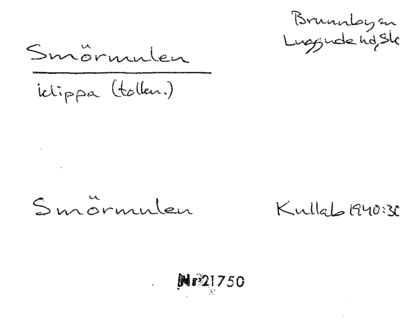 Brunnby sn
Luggude hd, Sk
Smörmulen
klippa (tolkn.)
Smörmulen
Kullab 1940:30
Nr 21750